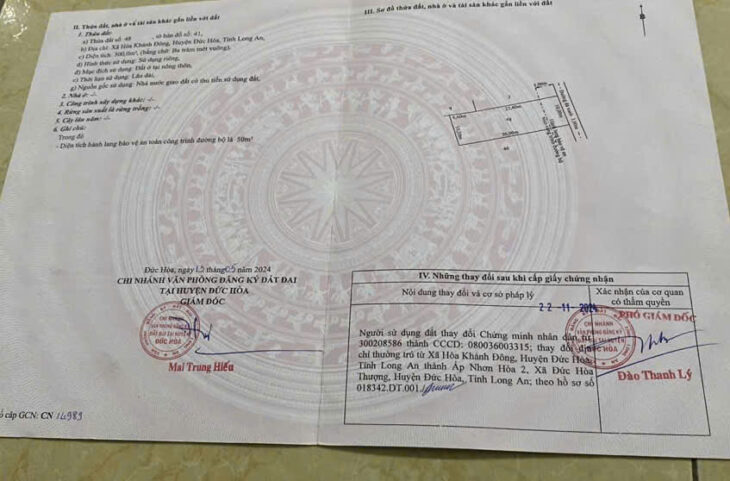 II. Thửa đất, nhà ở và tài sản khác gắn liền với đất
1. Thửa đất:
a) Thửa đất số: 48 , tờ bản đồ số: 41,
b) Địa chỉ: Xã Hòa Khánh Đông, Huyện Đức Hòa, Tỉnh Long An,
c) Diện tích: 300,0m², (bằng chữ: Ba trăm mét vuông),
d) Hình thức sử dụng: Sử dụng riêng,
đ) Mục đích sử dụng: Đất ở tại nông thôn,
e) Thời hạn sử dụng: Lâu dài,
g) Nguồn gốc sử dụng: Nhà nước giao đất có thu tiền sử dụng đất.
2. Nhà ở: -/-
3. Công trình xây dựng khác: -/-
4. Rừng sản xuất là rừng trồng: -/-
5. Cây lâu năm: -/-
6. Ghi chú:
Trong đó
- Diện tích hành lang bảo vệ an toàn công trình đường bộ là 50m²
Đức Hòa, ngày 15 tháng 05 năm 2024
CHI NHÁNH VĂN PHÒNG ĐĂNG KÝ ĐẤT ĐAI
TẠI HUYỆN ĐỨC HÒA
GIÁM ĐỐC
CHI NHÁNH
VĂN PHÒNG ĐĂNG KÝ
ĐẤT ĐAI TẠI HUYỆN
ĐỨC HÒA
Mai Trung Hiếu
số cấp GCN: CN 14989
III. Sơ đồ thửa đất, nhà ở và tài sản khác gắn liền với đất
IV. Những thay đổi sau khi cấp giấy chứng nhận
Nội dung thay đổi và cơ sở pháp lý
Xác nhận của cơ quan
có thẩm quyền
22-11-2024
Người sử dụng đất thay đổi Chứng minh nhân dân từ
300208586 thành CCCD: 080036003315; thay đổi địa
chỉ thường trú từ Xã Hòa Khánh Đông, Huyện Đức Hòa,
Tỉnh Long An thành Ấp Nhơn Hòa 2, Xã Đức Hòa
Thượng, Huyện Đức Hòa, Tỉnh Long An; theo hồ sơ số
018342.DT.001./
PHÓ GIÁM ĐỐC
CHI NHÁNH
VĂN PHÒNG ĐĂNG KÝ
ĐỨC HÒA
Đào Thanh Lý